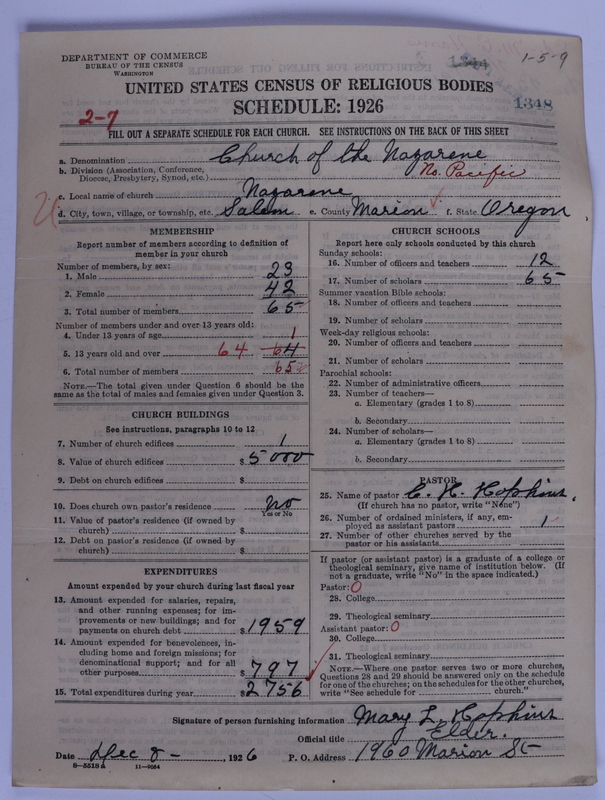 DEPARTMENT OF COMMERCE
BUREAU OF THE CENSUS
WASHINGTON
1344
1-5-9
UNITED STATES CENSUS OF RELIGIOUS BODIES
SCHEDULE: 1926
1348
2-7
FILL OUT A SEPARATE SCHEDULE FOR EACH CHURCH. SEE INSTRUCTIONS ON THE BACK OF THIS SHEET
a. Denomination Church of the Nazarene
b. Division (Association, Conference, Diocese, Presbytery, Synod, etc.) No. Pacific
c. Local name of church Nazarene
d. City, town, village, or township, etc. Salem e. County Marion f. State Oregon
MEMBERSHIP
Report number of members according to definition of
member in your church
Number of members, by sex:
1. Male 23
2. Female 42
3. Total number of members 65
Number of members under and over 13 years old:
4. Under 13 years of age 1
5. 13 years old and over 64 64
6. Total number of members 65
NOTE.—The total given under Question 6 should be
same as the total of males and females given under Question 3.
CHURCH BUILDINGS
See instructions, paragraphs 10 to 12
7. Number of church edifices 1
8. Value of church edifices $5000
9. Debt on church edifices $
10. Does church own pastor's residence no
Yes or No
11. Value of pastor's residence (if owned by
church) $
12. Debt on pastor's residence (if owned by
church) $
EXPENDITURES
Amount expended by your church during last fiscal year
13. Amount expended for salaries, repairs,
and other running expenses; for im-
provements or new buildings; and for
payments on church debt $1959
14. Amount expended for benevolences, in-
cluding home and foreign missions; for
denominational support; and for all
other purposes $797
15. Total expenditures during year $2756
CHURCH SCHOOLS
Report here only schools conducted by this church
Sunday schools:
16. Number of officers and teachers 12
17. Number of scholars 65
Summer vacation Bible schools:
18. Number of officers and teachers
19. Number of scholars
Week-day religious schools:
20. Number of officers and teachers
21. Number of scholars
Parochial schools:
22. Number of administrative officers
23. Number of teachers—
a. Elementary (grades 1 to 8)
b. Secondary
24. Number of scholars—
a. Elementary (grades 1 to 8)
b. Secondary
PASTOR
25. Name of pastor C. H. Hopkins
(If church has no pastor, write "None")
26. Number of ordained ministers, if any, em-
ployed as assistant pastors 1
27. Number of other churches served by the
pastor or his assistants
If pastor (or assistant pastor) is a graduate of a college or
theological seminary, give name of institution below. (If
not a graduate, write "No" in the space indicated.)
Pastor: 0
28. College
29. Theological seminary
Assistant pastor: 0
30. College
31. Theological seminary
NOTE.—Where one pastor serves two or more churches,
Questions 28 and 29 should be answered only on the schedule
for one of the churches; on the schedules for the other churches,
write "See schedule for church."
Signature of person furnishing information Mary L. Hopkins
Official title Elder.
Date Dec 8 - 1926 P. O. Address 1960 Marion St
8-5518 a 11-9564